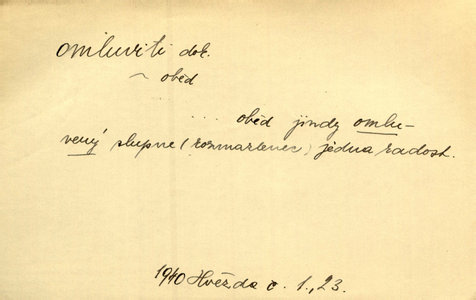 omluviti dok.
~ oběd
... oběd jindy omlu-
vený slupne (rozmarlenec) jedna radost.
1940 Hvězda č. 1., 23.